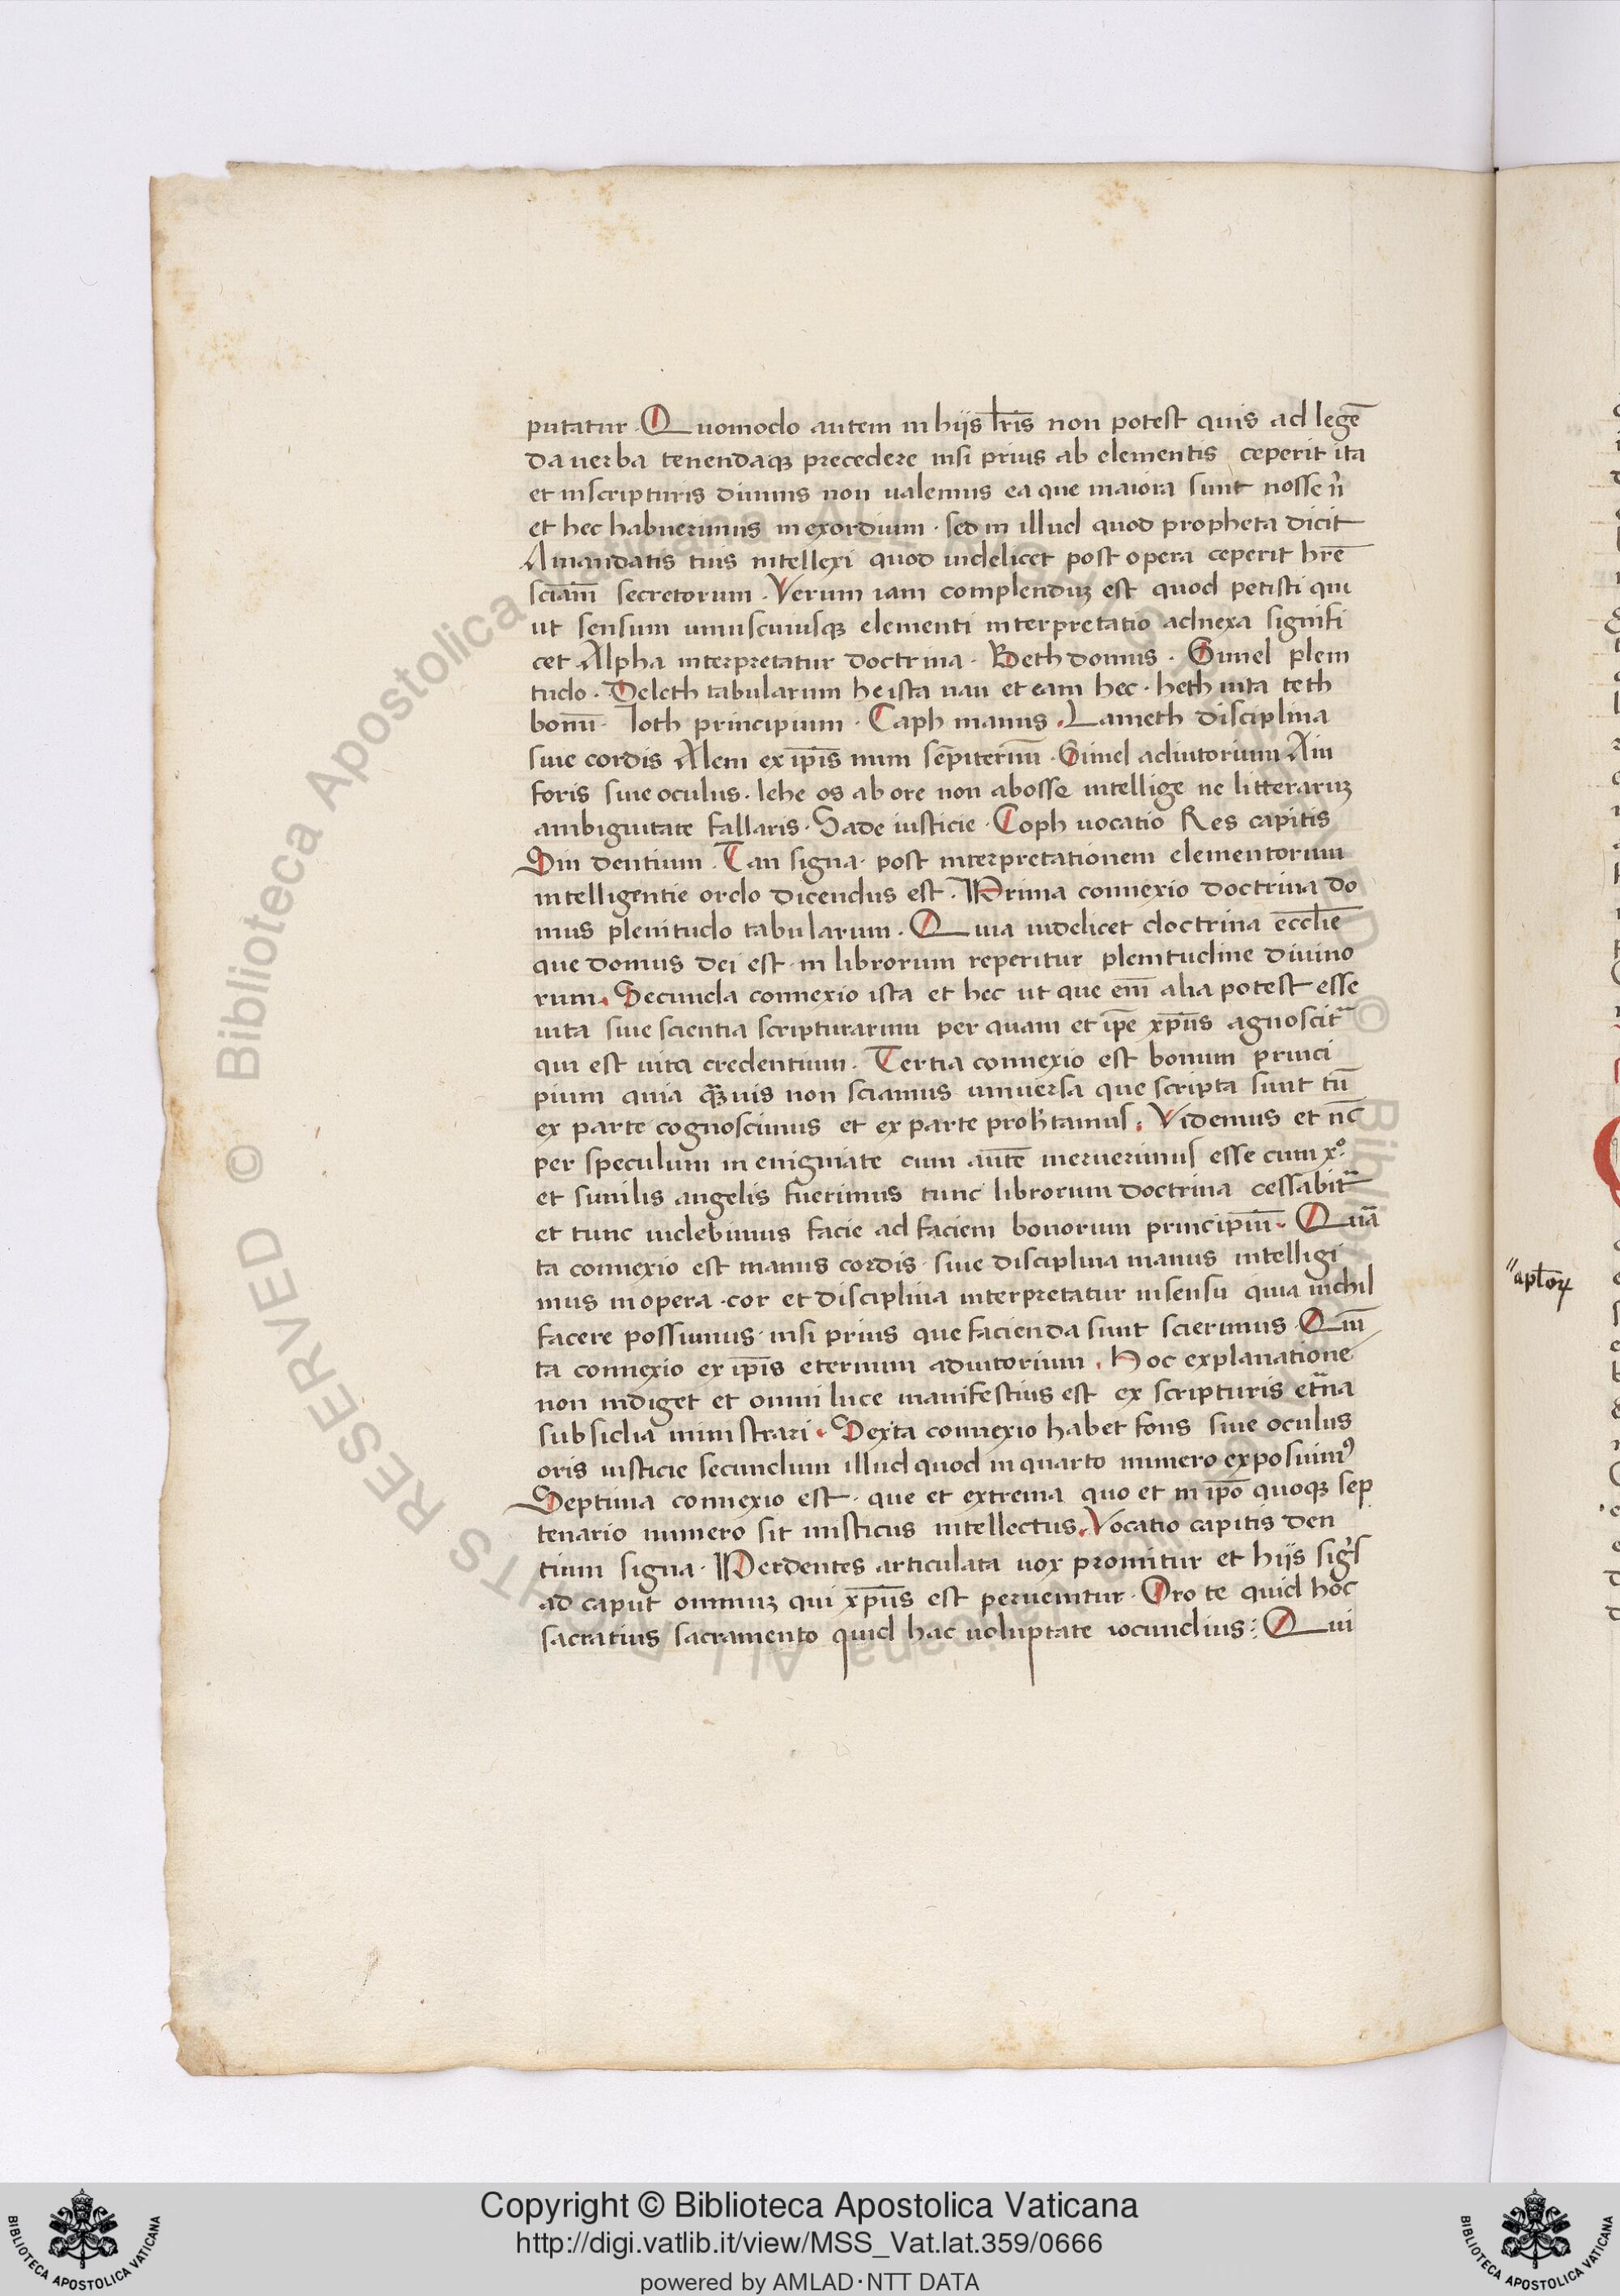 putatur. Quomodo autem in hijs lr̄is non potest quis ad legē
da uerba tenendaqꝫ precedere nisi prius ab elementis ceperit ita
et in scripturis diuinis non ualemus ea que maiora sunt nosse n̄
et hec habuerimus in exordium · sed in illud quod propheta dicit
A mandatis tuis intellexi quod uidelicet post opera ceperit hr̄e
sciam̄ secretorum. Verum iam complenduꝫ est quod petisti qui
ut sensum uniuscuiusqꝫ elementi interpretatio adnexa signifi
cet Alpha interpretatur doctrina · Beth domus · Gimel pleni
tudo · Deleth tabularum he ista uau et eam hec · heth uita teth
bonū · Ioth principium · Caph manus. Lameth disciplina
siue cordis Mem ex ip̄is num sēpiternū · Gimel adiutorium Ain
foris siue oculus · lehe os ab ore non ab osse intellige ne litteraruꝫ
ambiguitate fallaris · Sade iusticie · Coph uocatio Res capitis
Sin dentium · Tau signa · post interpretationem elementorum
intelligentie ordo dicendus est. Prima connexio doctrina do
mus plenitudo tabularum. Quia uidelicet doctrina eccl̄ie
que domus dei est in librorum reperitur plenitudine diuino
rum. Secunda connexio ista et hec ut que em̄ alia potest esse
uita siue scientia scripturarum per quam et ip̄e xp̄us agnoscit᷑
qui est uita credentium. Tertia connexio est bonum princi
pium quia q̄uis non sciamus uniuersa que scripta sunt tn̄
ex parte cognoscimus et ex parte proph̄tamus. Videmus et nc̄
per speculum in enigmate cum autē meruerimus esse cum xº.
et similis angelis fuerimus tunc librorum doctrina cessabit᷑
et tunc uidebimus facie ad faciem bonorum principiū. Quar
ta connexio est manus cordis siue disciplina manus intelligi
mus in opera · cor et disciplina interpretatur in sensu quia nichil
facere possumus nisi prius que facienda sunt scierimus · Quī
ta connexio ex ip̄is eternum adiutorium. Hoc explanatione
non indiget et omni luce manifestius est ex scripturis et͛na
subsidia ministrari. Sexta connexio habet fons siue oculus
oris iusticie secundum illud quod in quarto numero exposuimꝰ
Septima connexio est · que et extrema quo et in ip̄o quoqꝫ sep
tenario numero sit misticus intellectus. Vocatio capitis den
tium signa · Per dentes articulata uox promitur et hijs sig͛s
ad caput omniuꝫ qui xp̄us est peruenitur · Oro te quid hoc
sacratius sacramento quid hac uoluptate iocundius: Qui
aptoꝝ
© Biblioteca Apostolica Vaticana ALL RIGHTS RESERVED
Copyright © Biblioteca Apostolica Vaticana
http://digi.vatlib.it/view/MSS_Vat.lat.359/0666
powered by AMLAD·NTT DATA
BIBLIOTECA APOSTOLICA VATICANA
BIBLIOTECA APOSTOLICA VATICANA